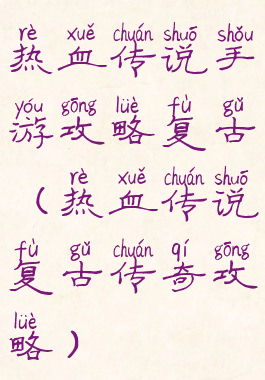 rè xuě chuán shuō shǒu
热血传说手
yóu gōng lüè fù gǔ
游攻略复古
rè xuě chuán shuō
（热血传说
fù gǔ chuán qí gōng
复古传奇攻
lüè
略）